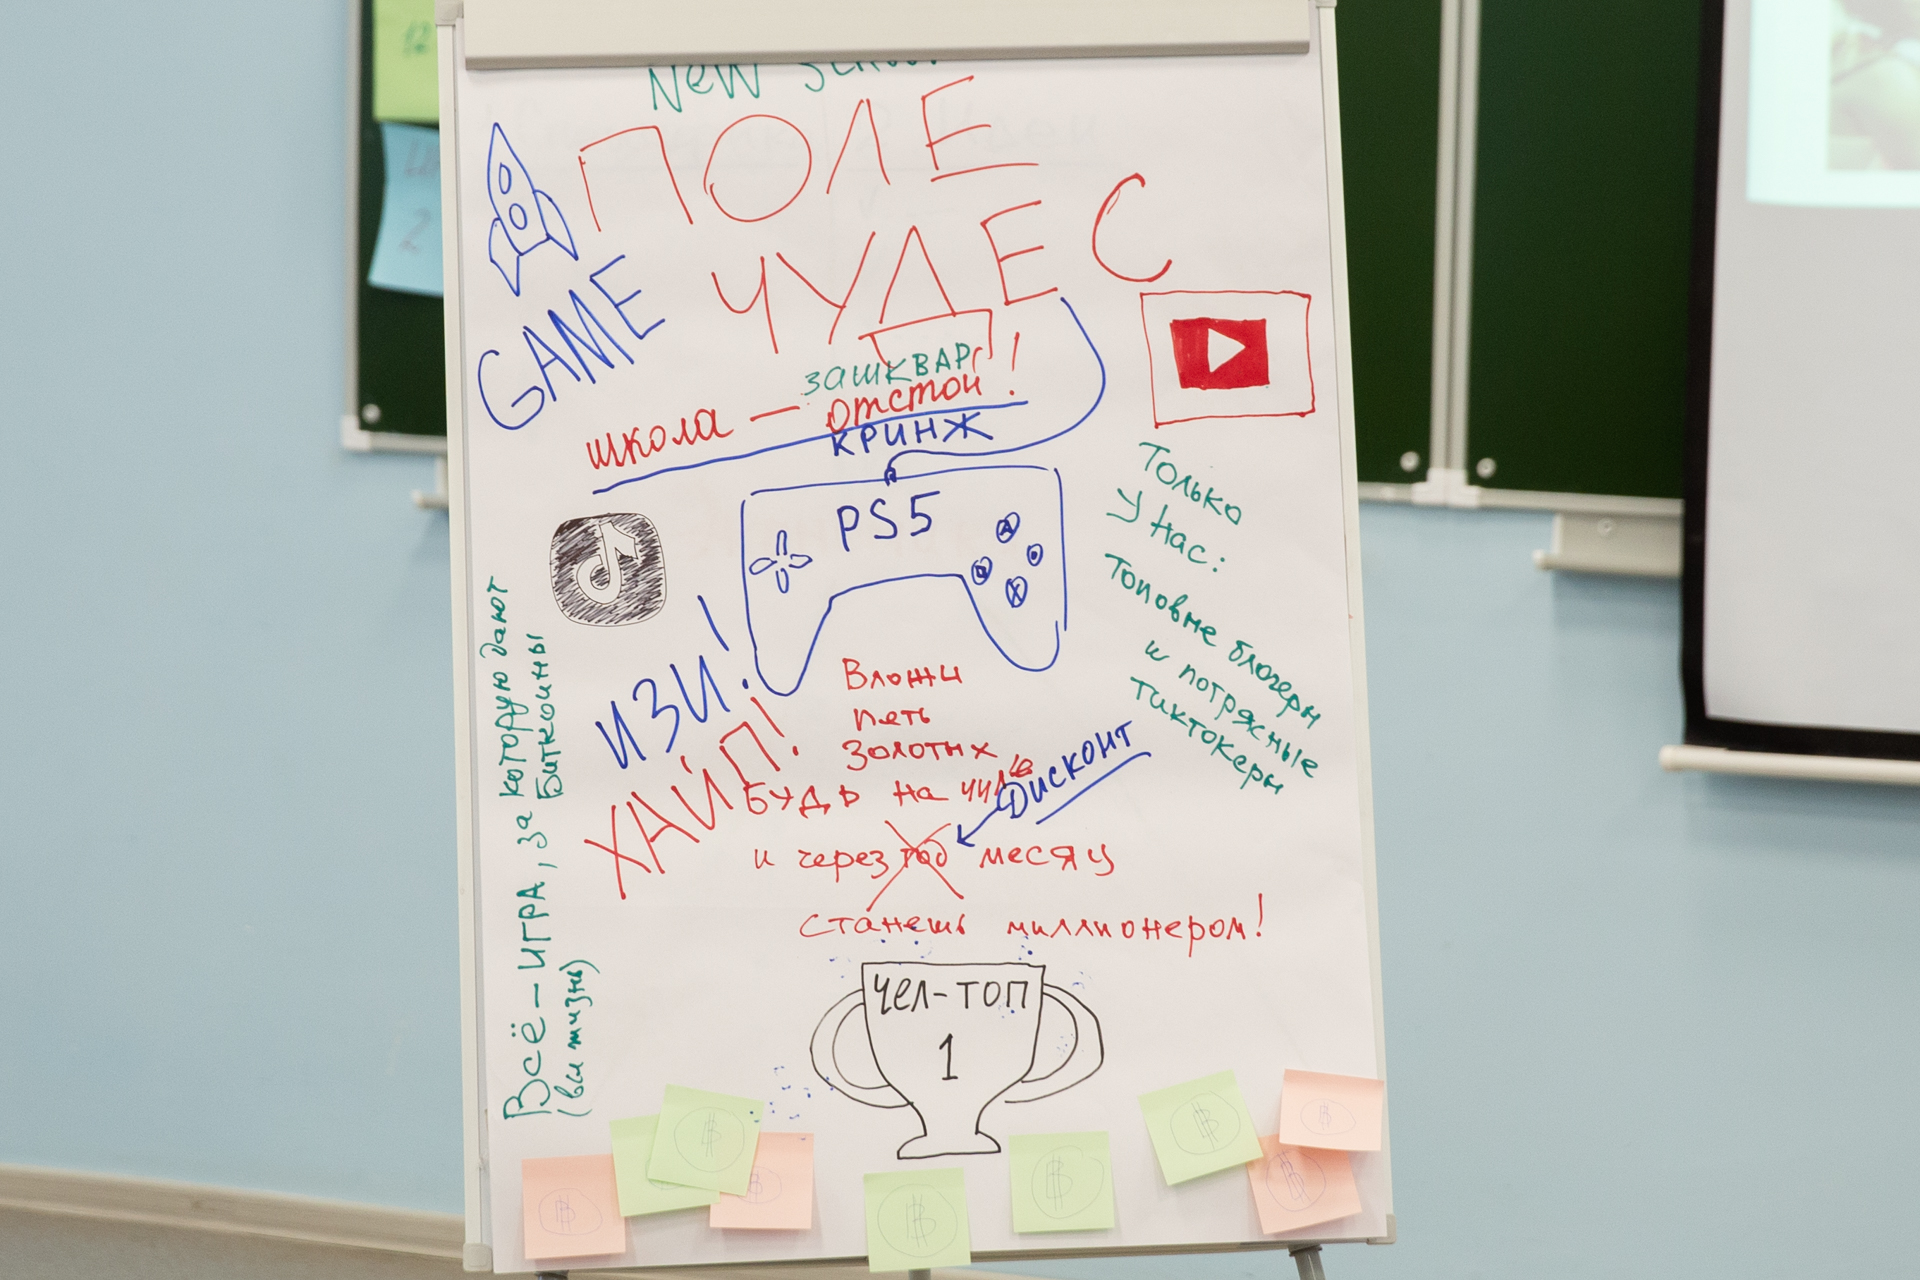 New School
ПОЛЕ
ЧУДЕС
GAME
зашквар
школа — отстой!
КРИНЖ
PS5
A
X
Только
у нас:
топовые блогеры
и потрясные
тиктокеры
ИЗИ!
ХАЙП!
Вложи
пять
золотых
БУДЬ на чиле
Дисконт
и через год месяц
станешь миллионером!
Всё – ИГРА, за которую дают
Биткоины
(вся жизнь)
ЧЕЛ-ТОП
1
12
2